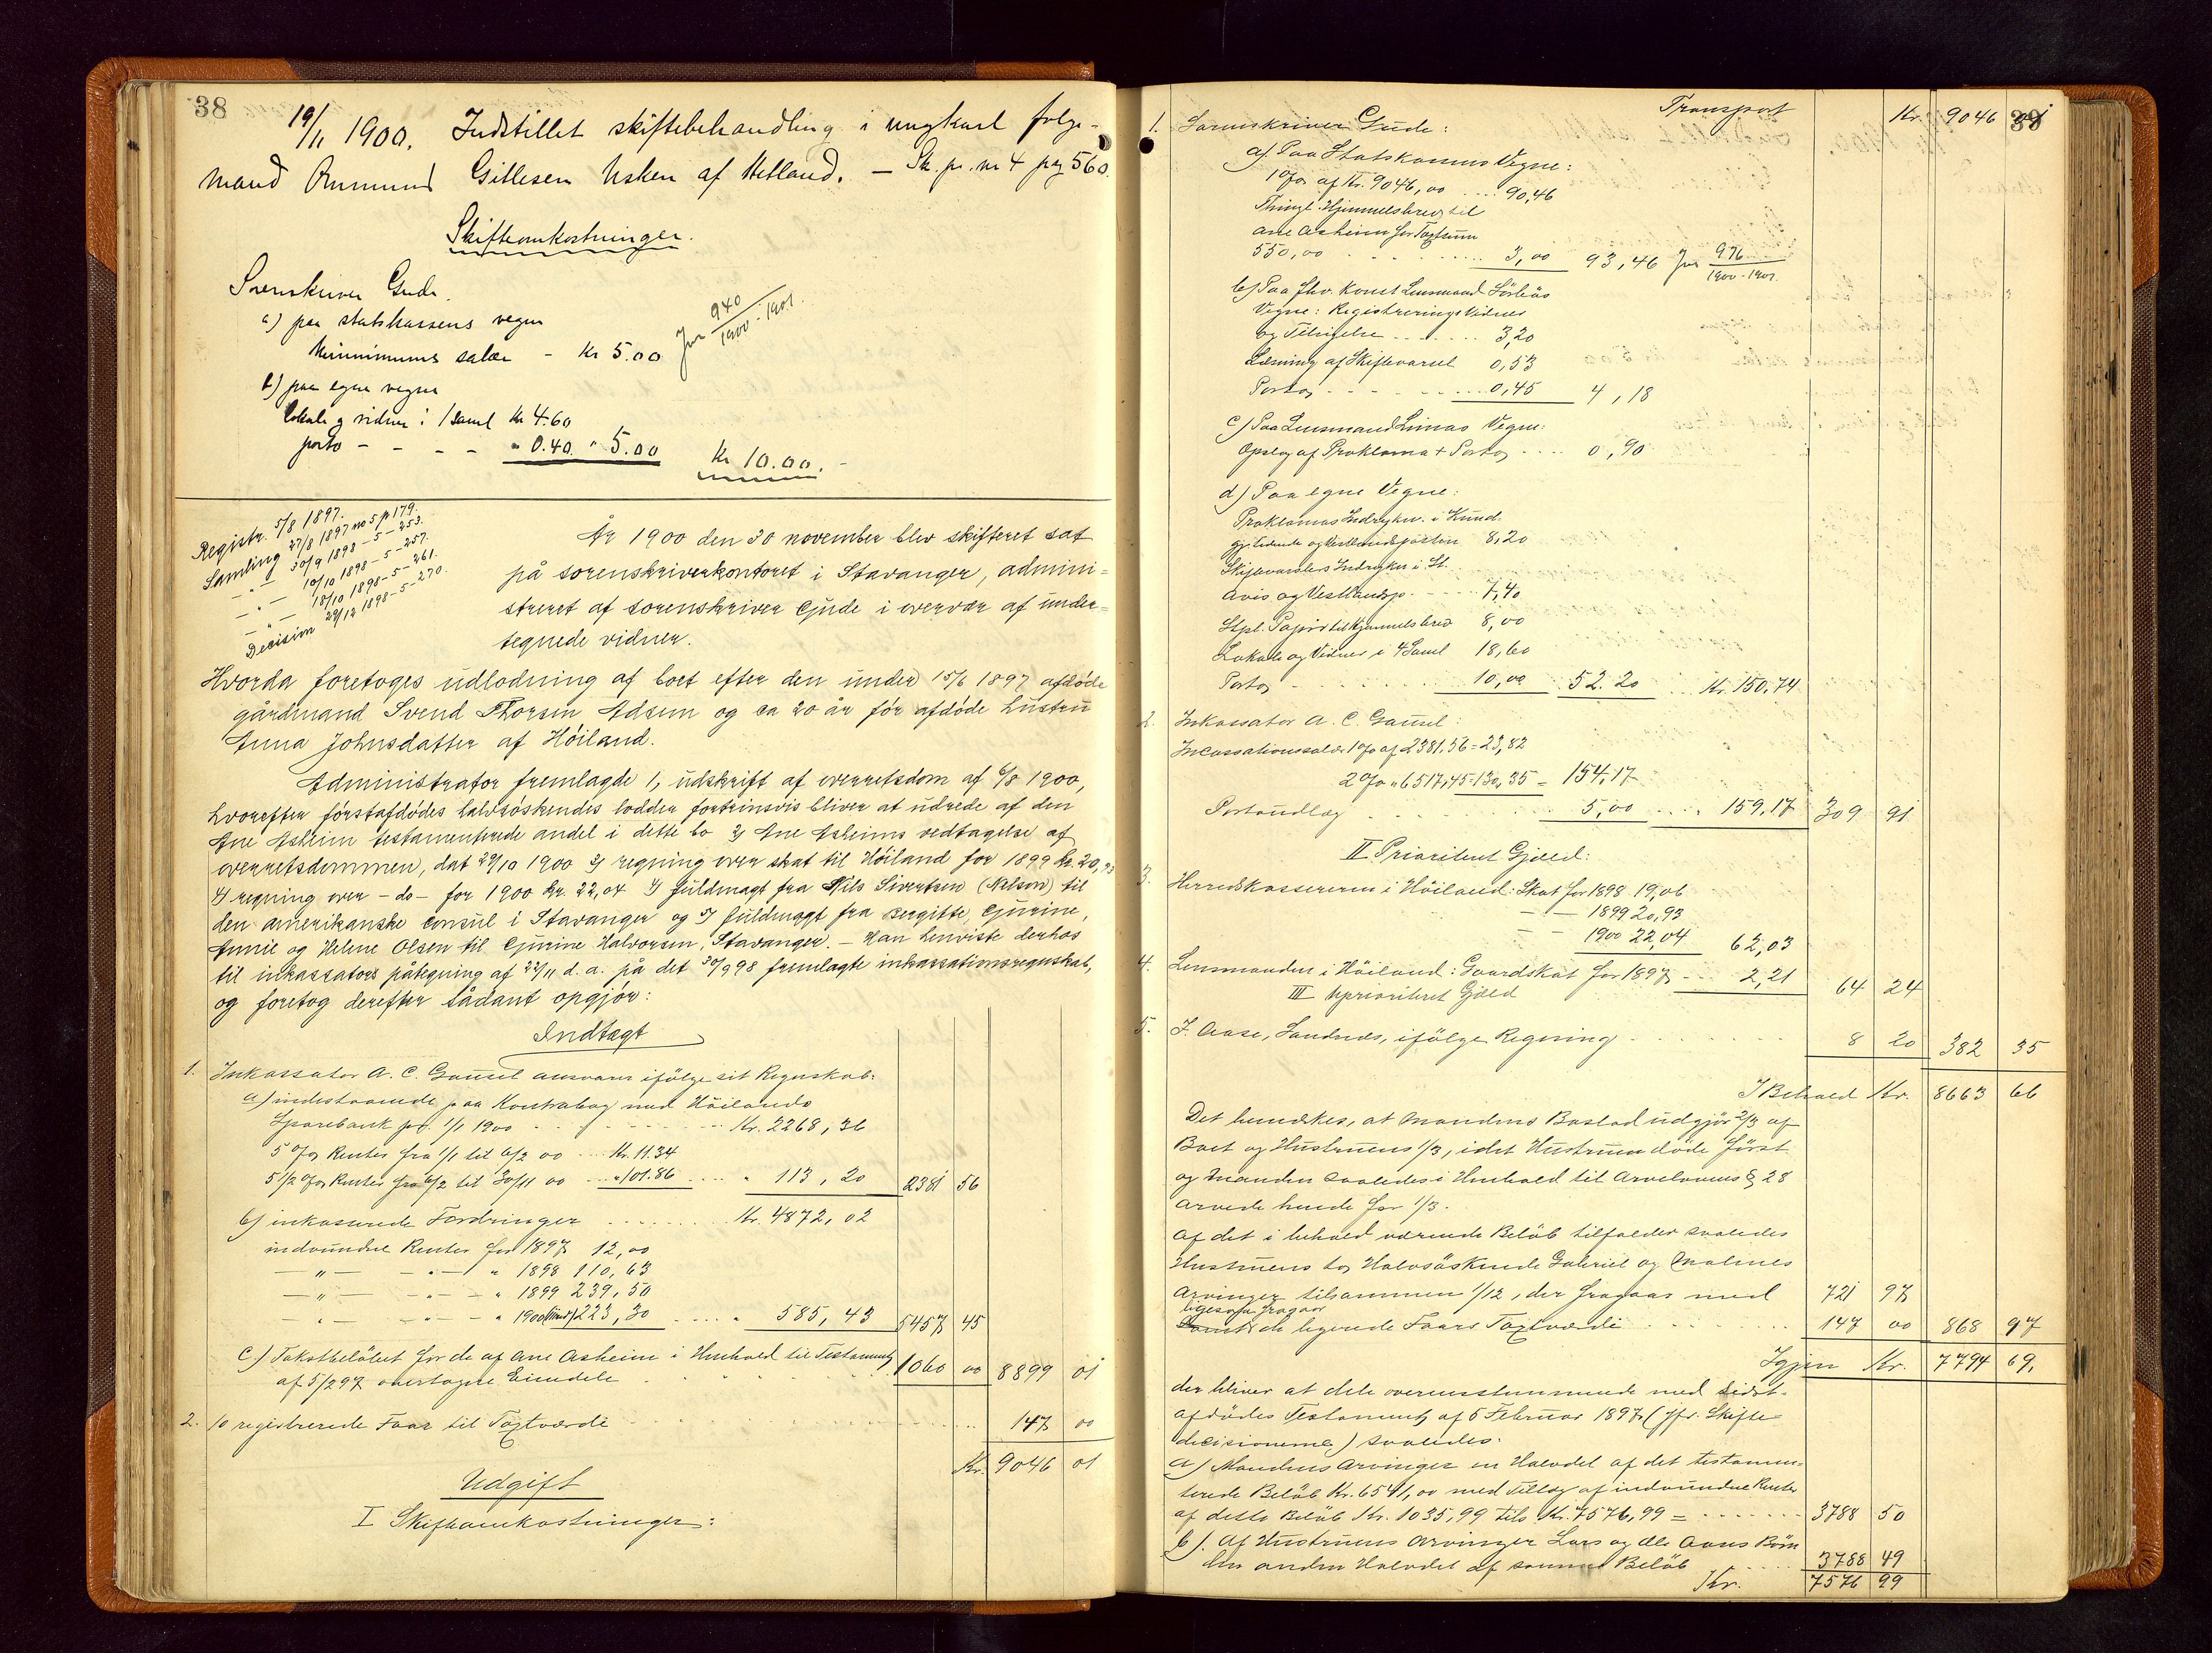 38
19/11 1900. Indstillet skiftebehandling i ungkarl følge-
mand Gitlesen Usken af Hetland. — Sk. pr. nr 4 pag 560.
Skifteomkostninger.
Sorenskriver Gude.
a) paa statskassens vegne
Minimums salær - Kr 5.00 Jnr 940/1900-1901.
b) paa egne vegne
Lokale og vidner i 1 Saml Kr 4.60
porto - - - - " 0.40 " 5.00 Kr 10.00.-
Registr. 5/8 1897.
Samling 27/8 1897 no 5 p 179.
— " — 30/9 1898 - 5 - 253.
— " — 10/10 1898 - 5 - 257.
— " — 18/10 1898 - 5 - 261.
Decision 22/12 1898 - 5 - 270.
År 1900 den 30 november blev skifteret sat
på sorenskriverkontoret i Stavanger, admini=
streret af sorenskriver Gude i overvær af under=
tegnede vidner.
Hvorda foretoges udlodning af boet efter den under 15/6 1897 afdøde
gårdmand Svend Thorsen Adsen og ca 20 år før afdøde hustru
Anna Johnsdatter af Höiland.
Administrator fremlagde 1, udskrift af overretsdom af 6/8 1900,
hvorefter førstafdødes halvsøskendes lodder fortrinsvis bliver at udrede af den
Ane Asheim testamenterede andel i dette bo 2) Ane Asheims vedtagelse af
overretsdommen, dat 29/10 1900 3) regning over skat til Höiland for 1899 kr. 20,93
4) regning over - do - for 1900 kr. 22,04 4) fuldmagt fra Nils Sivertsen (Nelson) til
den amerikanske consul i Stavanger og 5) fuldmagt fra Bergitte, Gurine,
Annie og Helene Olsen til Gurine Halvorsen, Stavanger. — Han henviste derhos
til inkassators påtegning af 22/11 d. a. på det 30/9 98 fremlagte inkassationsregnskab,
og foretog derefter sådant opgjør:
Indtægt
1. Inkassator A. C. Gausel ansvarer ifölge sit Regnskab:
a) indestaaende paa Kontrabog med Höilands
Sparebank pr. 1/1 1900 - - - - Kr. 2268,36
5 % Renter fra 1/1 til 6/2 00 ... Kr. 11.34
5 1/2 % Renter fra 6/2 til 30/11 00 ... " 101.86 .... " 113,20 2381 56
b) inkasserede Fordringer ....... Kr. 4872,02
indvundne Renter for 1897 12,00
— " — - " - " 1898 110,63
— " — - " - " 1899 239,50
" — - " - " 1900 223,30 .... " 585,43 5457 45
c) Takstbelöbet for de af Ane Asheim i Henhold til Testament
af 5/2 97 overtagne Eiendele 1060 00 8899 01
2. 10 registrerede Faar til Taxtværdi 147 00
Kr. 9046 01
Udgift
I Skifteomkostninger:
39
Transport Kr. 9046 01
1. Sorenskriver Gude:
a) Paa Statskassens Vegne:
1 % af Kr. 9046,00 ... 90,46
Thingl. Hjemmelsbrev til
Ane Asheim for Taxtsum
550,00 ...... 3,00 93,46 Jnr 976/1900-1901
b) Paa fhv. Konst Lensmand
Vegne: Registrerings Vidner
og Tilsigelse ..... 3,20
Læsning af Skiftevarsel 0,53
Porto ...... 0,45 4,18
c) Paa Lensmand Limas Vegne:
Opslag af Proklama + Porto .... 0,90
d) Paa egne Vegne:
Proklamas Indrykn. i Kund-
gj. tidende og Vestlandsposten 8,20
Skiftevarslers Indrykn i St.
Avis og Vestlandsp. ..... 7,40
Stpl. Papir til Hjemmelsbrev 8,00
Lokale og Vidner i 4 Saml 18,60
Porto ......... 10,00 52.20 .. Kr. 150,74
2. Inkassator A. C. Gausel:
Incassationssalær 1 % af 2381.56 = 23,82
2 % " 6517,45 = 130,35 = 154,17
Portoudlæg ....... 5,00 .... " 159,17 309 91
II Prioriteret Gjæld:
3. Herredskassereren i Höiland: Skat for 1898 19,06
— — 1899 20,93
— — 1900 22,04 62,03
4. Lensmanden i Höiland: Gaardskat for 1897 ... 2,21 64 24
III Uprioriteret Gjæld
5. J. Aase, Sandnæs, ifölge Regning ....... 8 20 382 35
I Behold Kr. 8663 66
Det bemærkes, at Mandens Boslod udgjør 2/3 af
Boet og Hustruens 1/3, idet Hustruen döde först
og Manden saaledes i Henhold til Arvelovens § 28
arvede hende for 1/3.
Af det i behold værende Belöb tilfalder saaledes
Hustruens to Halvsöskende Gabriel og Malenes
Arvinger tilsammen 1/12, der fragaar med 721 97
ligesom fragaar
de legerede Faars Taxtværdi ....... 147 00 868 97
Igjen Kr. 7794 69,
der bliver at dele overensstemmende med sidst-
afdödes Testament af 5 Februar 1897 (jfr. Skifte-
decisionerne) saaledes:
a) Mandens Arvinger en Halvdel af det testamen-
terede Belöb Kr. 6541,00 med Tillæg af indvundne Renter
af dette Belöb Kr. 1035,99 tils Kr. 7576,99 = ....... 3788 50
b). Af Hustruens Arvinger Lars og Ole Aanes Börn
den anden Halvdel af samme Belöb .... 3788 49
Kr. 7576 99